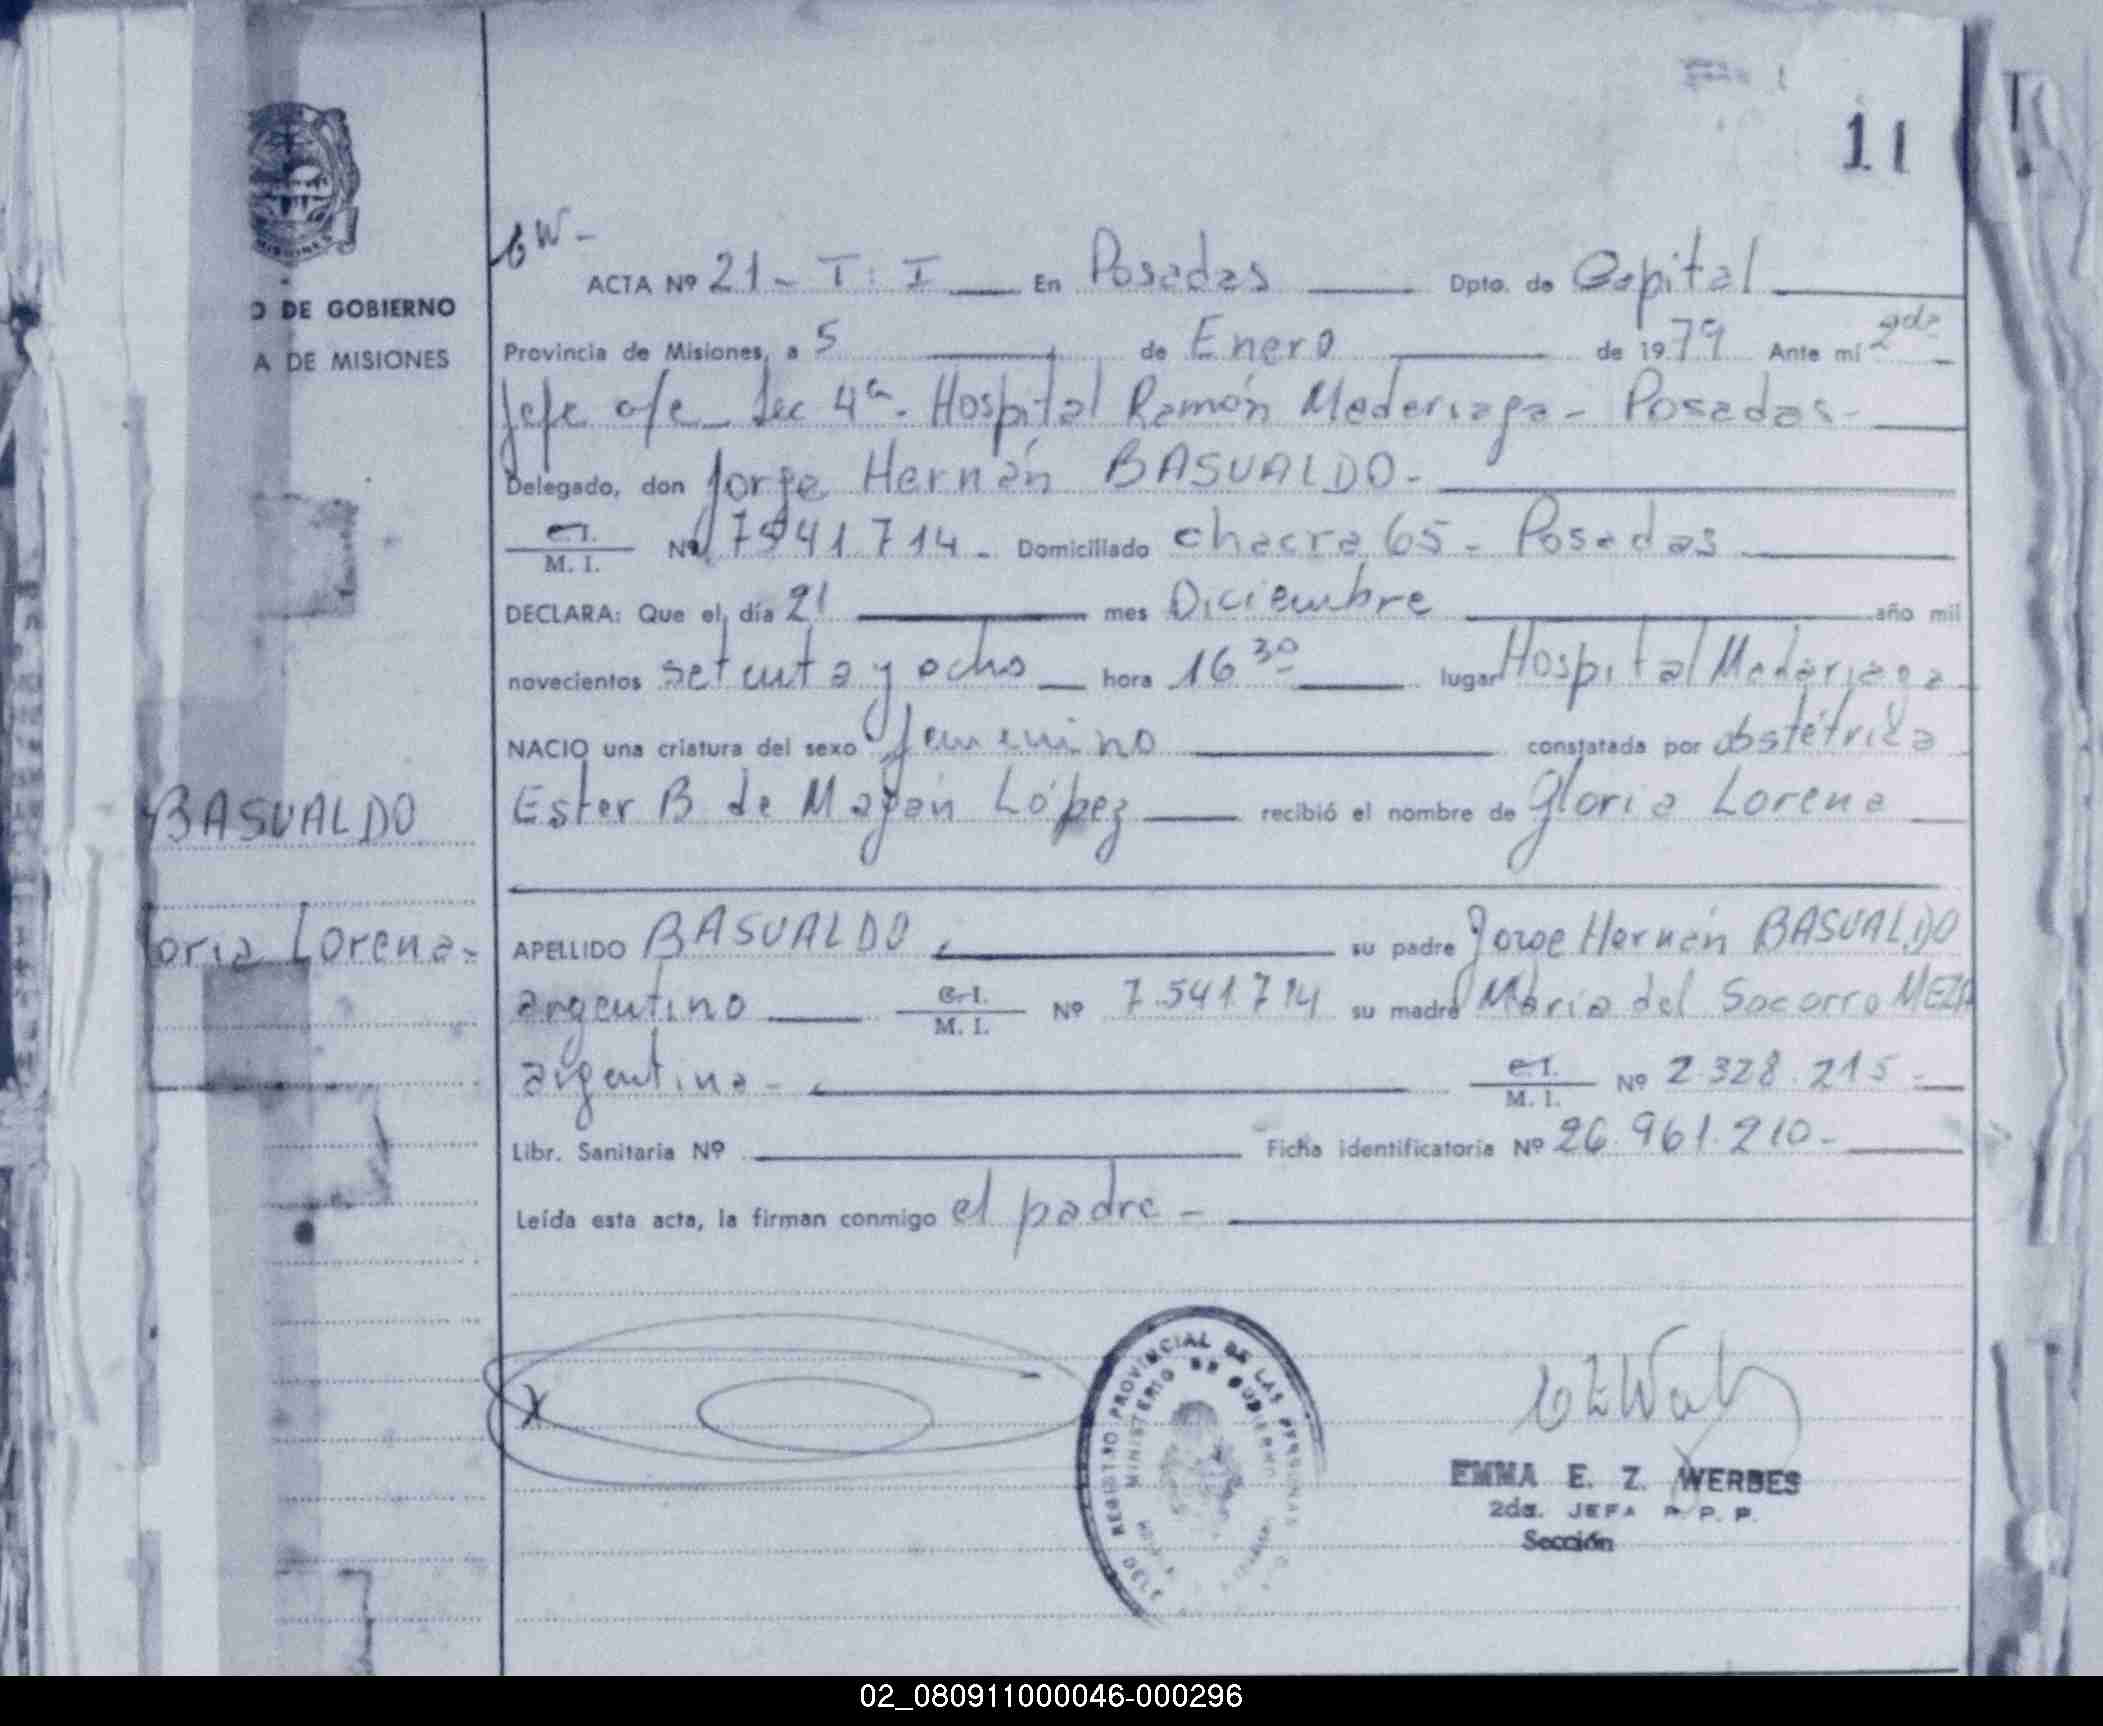 11
ACTA Nº 21 - T: I En Posadas Dpto. de Capital
O DE GOBIERNO
A DE MISIONES
Provincia de Misiones, a 5 de Enero de 1979 Ante mí 2da
Jefe a/c Sec 4a. Hospital Ramón Madariaga - Posadas -
Delegado, don Jorge Hernán BASUALDO -
C. I.
M. I. Nº 7541714 - Domiciliado chacra 65 - Posadas
DECLARA: Que el día 21 mes Diciembre año mil
novecientos setenta y ocho hora 16 30 lugar Hospital Madariaga
NACIO una criatura del sexo femenino constatada por obstétrica
Ester B de Mayán López recibió el nombre de Gloria Lorena
BASUALDO
oria Lorena -
APELLIDO BASUALDO su padre Jorge Hernán BASUALDO
argentino C. I.
M. I. Nº 7.541.714 su madre María del Socorro MEZA
argentina - C. I.
M. I. Nº 2.328.215 -
Libr. Sanitaria Nº Ficha identificatoria Nº 26.961.210 -
Leída esta acta, la firman conmigo el padre -
X
REGISTRO PROVINCIAL DE LAS PERSONAS
MINISTERIO DE GOBIERNO
EMMA E. Z. WERBES
2da. JEFA R. P. P.
Sección
02_080911000046-000296